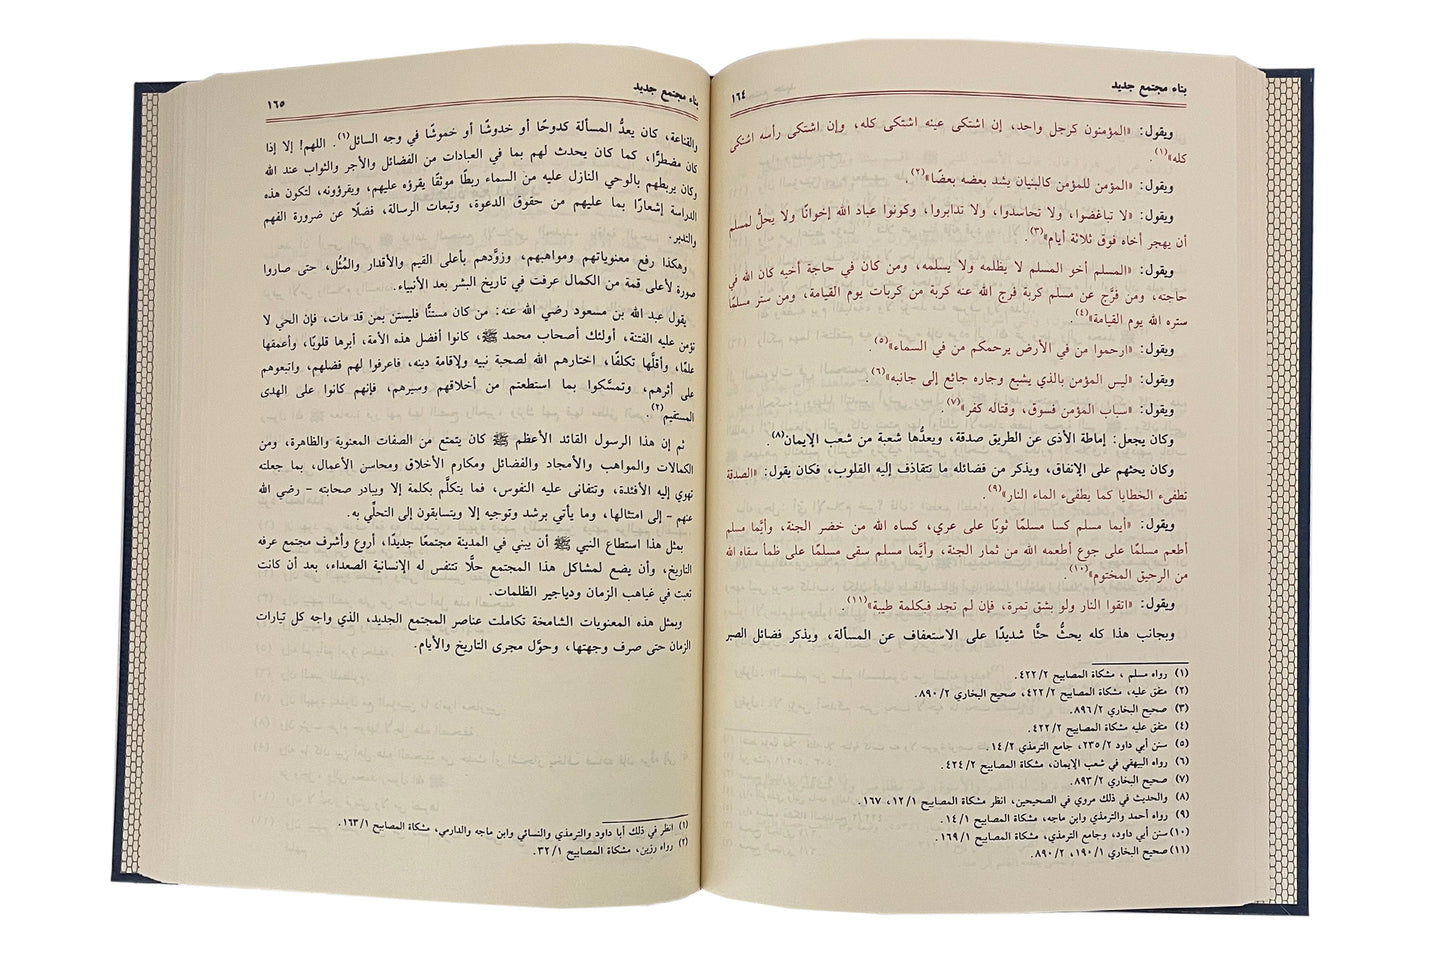 بناء مجتمع جديد
١٦٤
ويقول: «المؤمنون كرجل واحد، إن اشتكى عينه اشتكى كله، وإن اشتكى رأسه اشتكى
كله»(١).
ويقول: «المؤمن للمؤمن كالبنيان يشد بعضه بعضًا»(٢).
ويقول: «لا تباغضوا، ولا تحاسدوا، ولا تدابروا، وكونوا عباد الله إخوانًا ولا يحلُّ لمسلم
أن يهجر أخاه فوق ثلاثة أيام»(٣).
ويقول: «المسلم أخو المسلم لا يظلمه ولا يسلمه، ومن كان في حاجة أخيه كان الله في
حاجته، ومن فرَّج عن مسلم كربة فرج الله عنه كربة من كربات يوم القيامة، ومن ستر مسلمًا
ستره الله يوم القيامة»(٤).
ويقول: «ارحموا من في الأرض يرحمكم من في السماء»(٥).
ويقول: «ليس المؤمن بالذي يشبع وجاره جائع إلى جانبه»(٦).
ويقول: «سباب المؤمن فسوق، وقتاله كفر»(٧).
وكان يجعل: إماطة الأذى عن الطريق صدقة، ويعدُّها شعبة من شعب الإيمان(٨).
وكان يحثهم على الإنفاق، ويذكر من فضائله ما تتقاذف إليه القلوب، فكان يقول: «الصدقة
تطفىء الخطايا كما يطفىء الماء النار»(٩).
ويقول: «أيما مسلم كسا مسلمًا ثوبًا على عري، كساه الله من خضر الجنة، وأيَّما مسلم
أطعم مسلمًا على جوع أطعمه الله من ثمار الجنة، وأيَّما مسلم سقى مسلمًا على ظمأ سقاه الله
من الرحيق المختوم»(١٠).
ويقول: «اتقوا النار ولو بشق تمرة، فإن لم تجد فبكلمة طيبة»(١١).
وبجانب هذا كله يحثُّ حثًّا شديدًا على الاستعفاف عن المسألة، ويذكر فضائل الصبر
(١) رواه مسلم ، مشكاة المصابيح ٤٢٢/٢.
(٢) متفق عليه، مشكاة المصابيح ٤٢٢/٢، صحيح البخاري ٨٩٠/٢.
(٣) صحيح البخاري ٨٩٦/٢.
(٤) متفق عليه مشكاة المصابيح ٤٢٢/٢.
(٥) سنن أبي داود ٢٣٥/٢، جامع الترمذي ١٤/٢.
(٦) رواه البيهقي في شعب الإيمان، مشكاة المصابيح ٤٢٤/٢.
(٧) صحيح البخاري ٨٩٣/٢.
(٨) والحديث في ذلك مروي في الصحيحين، انظر مشكاة المصابيح ١٢/١، ١٦٧.
(٩) رواه أحمد والترمذي وابن ماجه، مشكاة المصابيح ١٤/١.
(١٠) سنن أبي داود، وجامع الترمذي، مشكاة المصابيح ١٦٩/١.
(١١) صحيح البخاري ١٩٠/١، ٨٩٠/٢.
بناء مجتمع جديد
١٦٥
والقناعة، كان يعدُّ المسألة كدوحًا أو خدوشًا أو خموشًا في وجه السائل(١). اللهم! إلا إذا
كان مضطرًّا، كما كان يحدث لهم بما في العبادات من الفضائل والأجر والثواب عند الله
وكان يربطهم بالوحي النازل عليه من السماء ربطًا موثقًا يقرؤه عليهم، ويقرؤونه، لتكون هذه
الدراسة إشعارًا بما عليهم من حقوق الدعوة، وتبعات الرسالة، فضلًا عن ضرورة الفهم
والتدبر.
وهكذا رفع معنوياتهم ومواهبهم، وزوَّدهم بأعلى القيم والأقدار والمُثُل، حتى صاروا
صورة لأعلى قمة من الكمال عرفت في تاريخ البشر بعد الأنبياء.
يقول عبد الله بن مسعود رضي الله عنه: من كان مستنًّا فليستن بمن قد مات، فإن الحي لا
تؤمن عليه الفتنة، أولئك أصحاب محمد ﷺ، كانوا أفضل هذه الأمة، أبرها قلوبًا، وأعمقها
علمًا، وأقلَّها تكلفًا، اختارهم الله لصحبة نبيه ولإقامة دينه، فاعرفوا لهم فضلهم، واتبعوهم
على أثرهم، وتمسَّكوا بما استطعتم من أخلاقهم وسيرهم، فإنهم كانوا على الهدى
المستقيم(٢).
ثم إن هذا الرسول القائد الأعظم ﷺ كان يتمتع من الصفات المعنوية والظاهرة، ومن
الكمالات والمواهب والأمجاد والفضائل ومكارم الأخلاق ومحاسن الأعمال، بما جعلته
تهوي إليه الأفئدة، وتتفانى عليه النفوس، فما يتكلَّم بكلمة إلا ويبادر صحابته – رضي الله
عنهم – إلى امتثالها، وما يأتي برشد وتوجيه إلا ويتسابقون إلى التحلِّي به.
بمثل هذا استطاع النبي ﷺ أن يبني في المدينة مجتمعًا جديدًا، أروع وأشرف مجتمع عرفه
التاريخ، وأن يضع لمشاكل هذا المجتمع حلًّا تتنفس له الإنسانية الصعداء، بعد أن كانت
تعبت في غياهب الزمان ودياجير الظلمات.
وبمثل هذه المعنويات الشامخة تكاملت عناصر المجتمع الجديد، الذي واجه كل تيارات
الزمان حتى صرف وجهتها، وحوَّل مجرى التاريخ والأيام.
(١) انظر في ذلك أبا داود والترمذي والنسائي وابن ماجه والدارمي، مشكاة المصابيح ١٦٣/١.
(٢) رواه رزين، مشكاة المصابيح ٣٢/١.